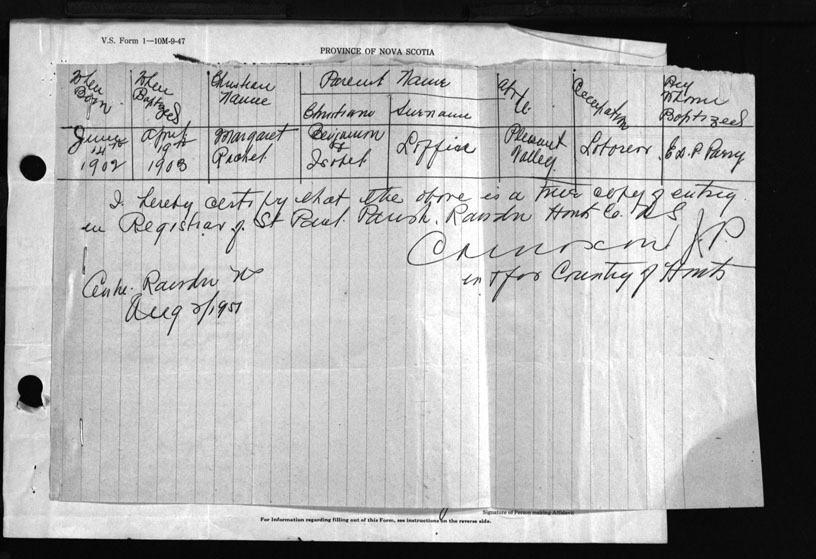 V.S. Form 1—10M-9-47
PROVINCE OF NOVA SCOTIA
When Born
When Baptized
Christian Name
Parent Name
Christian
Surname
Abode
Occupation
By Whom Baptized
June 14th 1902
April 19th 1903
Margaret Rachel
Benjamin & Isobel
Pleasant Valley
Laborer
Parry
I hereby certify that the above is a true copy of entry
in Registrar of St Paul Parish. Rawdon Hants Co. N S
J P
in & for Country of Hants
Centre Rawdon
Aug 1951
Signature of Person making Affidavit
For Information regarding filling out of this Form, see instructions on the reverse side.